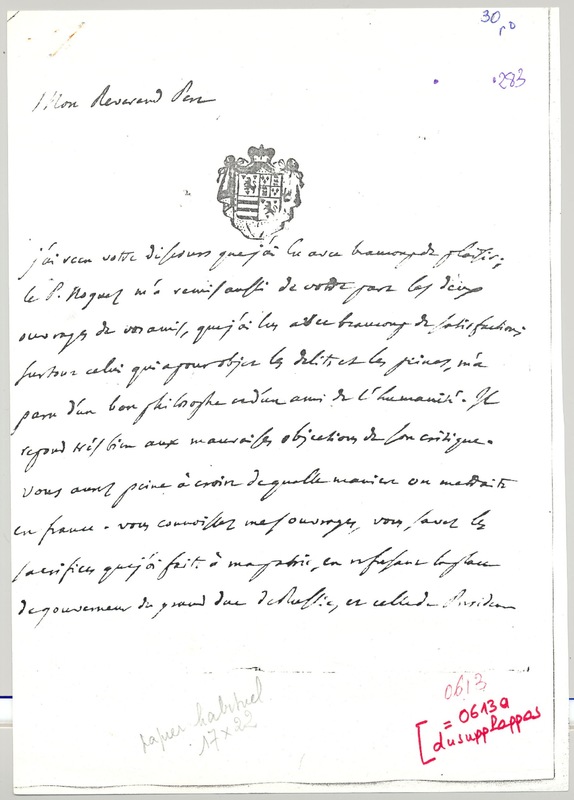 30
r°
283
Mon Reverend Pere
j'ai recu votre discours que j'ai lu avec beaucoup de plaisir;
le P. Noguez m'a remis aussi de votre part les deux
ouvrages de vos amis, que j'ai lus avec beaucoup de satisfaction;
surtout celui qui a pour objet les delits et les peines, m'a
paru d'un bon philosophe et d'un ami de l'humanité. Il
repond trés bien aux mauvaises objections de son critique.
vous aurez peine à croire de quelle maniere on me traite
en france. vous connoissez mes ouvrages, vous savez les
sacrifices que j'ai fait à ma patrie, en refusant la place
de gouverneur du grand duc de Russie, et celle de President
papier habituel
17 x 22
0613
= 0613a
du supp Lappas